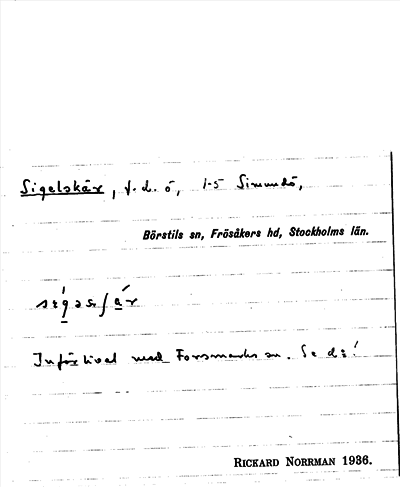 Sigelskär, f.d. ö, 1-5 Simundö,
Börstils sn, Frösåkers hd, Stockholms län.
Införlivat med Forsmarks sn. Se d:!
RICKARD NORRMAN 1936.